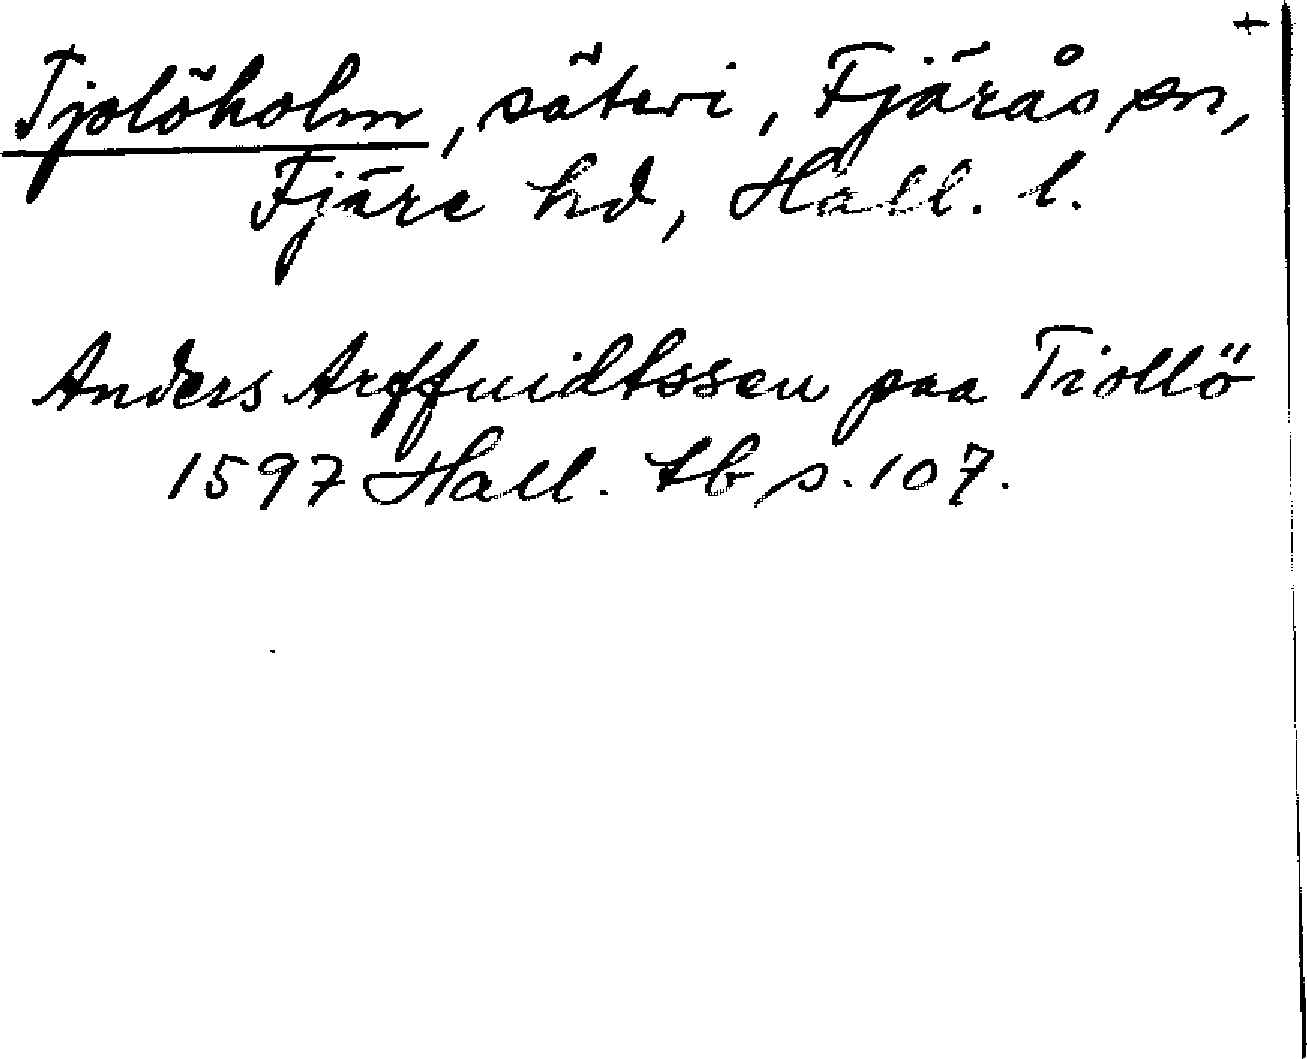 +
Tjolöholm, säteri, Fjärås sn,
Fjäre hd, Hall. l.
Anders Arffuidtssen paa Tiollö
1597 Hall. tb s. 107.